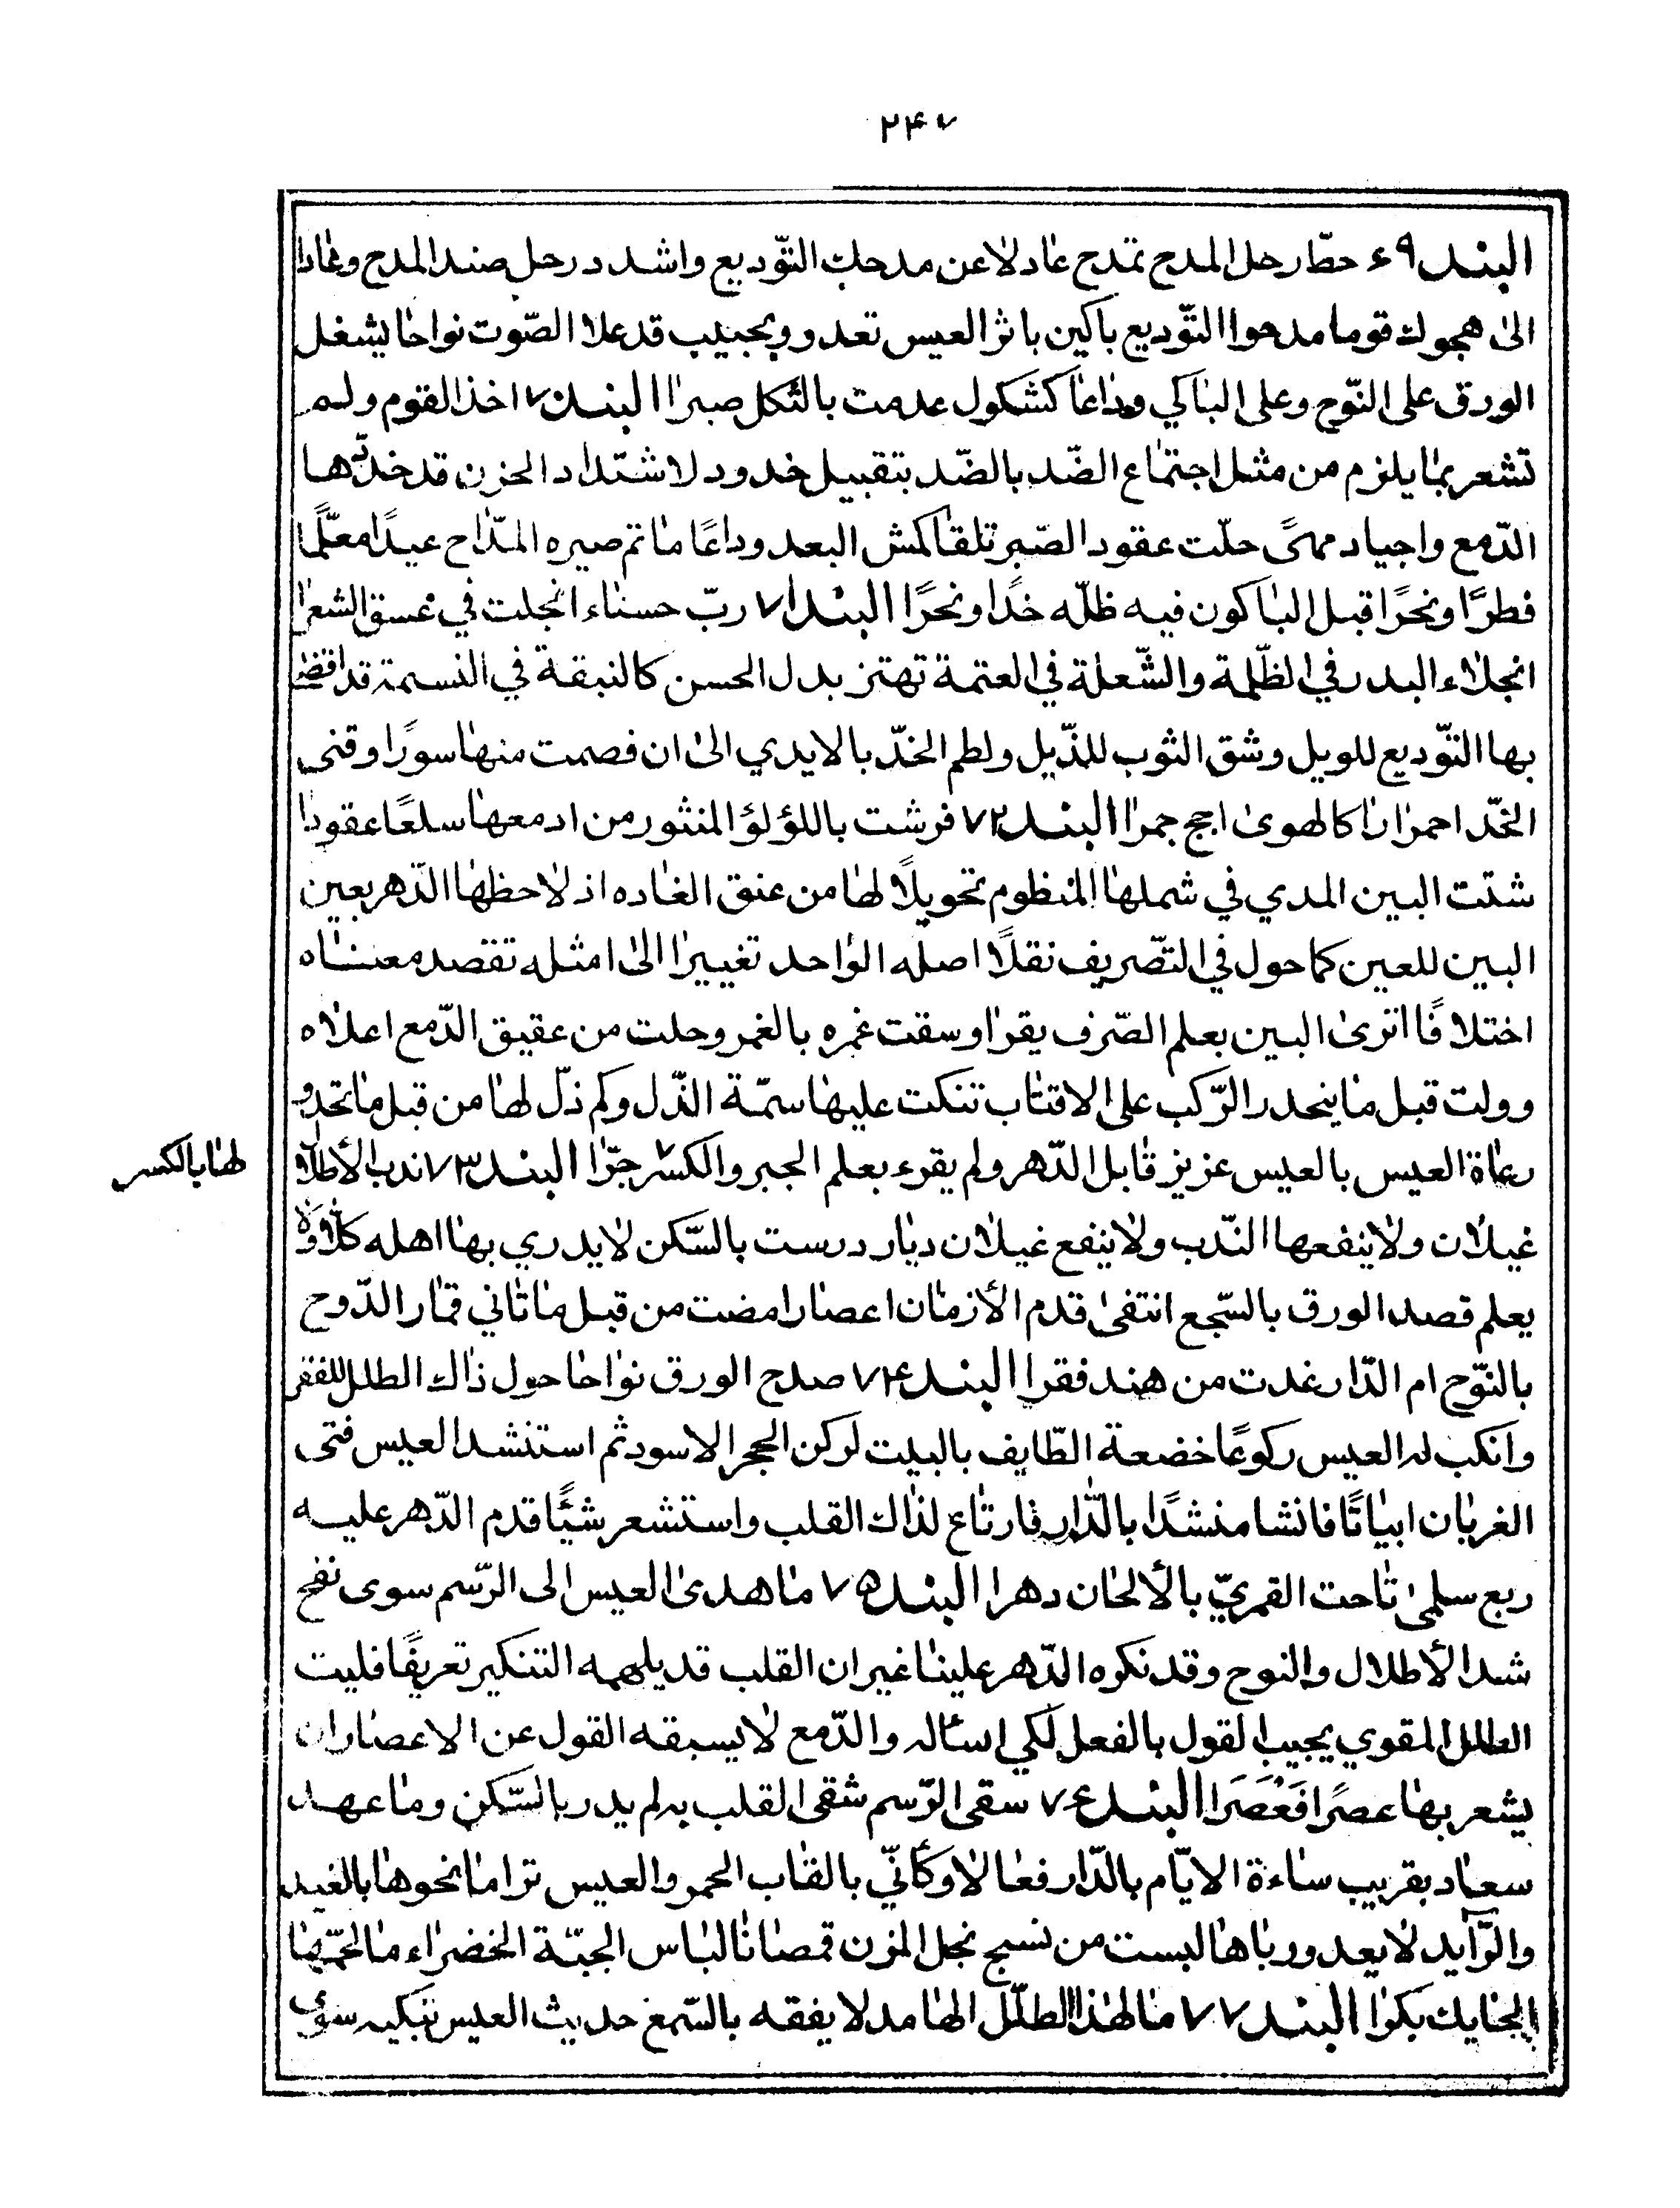 ۲۴۷
البند ۶۹ حطّ رحل المدح تمدح عادلا عن مدحك التّوديع واشدد رحل ضد المدح وغادا
الىٰ هجوك قوما مدحوا التّوديع باكين باثر العيس تعدو وبجنيب قد علا الصّوت نواحا يشغل
الورق على النّوح وعلى الباكي وداعا كشكول عدمت بالثكل صبرا البند ۷۰ اخذ القوم ولم
تشعر بما يلزم من مثل اجتماع الضّد بالضّد بتقبيل خدود لاشتداد الحزن قد خدّتها
الدّمع واجياد مهىً حلّت عقود الصّبر تلقا كمش البعد وداعًا ماتم صيره المدّاح عيدًا معلّمًا
فطرًا ونحرًا قبل الباكون فيه ظلّه خدًا ونحرًا البند ۷۱ ربّ حسناء انجلت في غسق الشعرا
انجلاء البدر في الظّلمة والشّعلة في العتمة تهتز بدل الحسن كالنبقة في النسمة قد اقضىٰ
بها التّوديع للويل وشق الثوب للذّيل ولطم الخدّ بالايدي الىٰ ان فصمت منها سورًا وقنى
الخدّ احمرارا كالهوىٰ اجج جمرا البند ۷۲ فرشت باللؤلؤ المنثور من ادمعها سلعًا عقودا
شتت البين المدي في شملها المنظوم تحويلًا لها من عنق الغاده اذ لاحظها الدّهر بعين
البين للعين كما حول في التّصريف نقلًا اصله الواحد تغييرا الىٰ امثله تقصد معناه
اختلافًا اترىٰ البين بعلم الصّرف يقرا وسقت غمره بالغمر وحلت من عقيق الدّمع اعلاه
وولت قبل ما ينحدر الرّكب على الاقتاب تنكت عليها سمّة الذّل وكم ذلّ لها من قبل ما تحدو
رعاة العيس بالعيس عزيز قابل الدّهر ولم يقرء بعلم الجبر والكسر جبرًا البند ۷۳ ندب الأطلال
لها بالكسر
غيلان ولا ينفعها النّدب ولا ينفع غيلان ديار درست بالسّكن لا يدري بها اهله كلّا ولا
يعلم قصد الورق بالسّجع انتفىٰ قدم الأزمان اعصارا مضت من قبل ما تاني قمار الدّوح
بالنّوح ام الدّار غدت من هند فقرا البند ۷۴ صدح الورق نواحا حول ذاك الطلل للفقر
وانكب له العيس ركوعًا خضعة الطّايف بالبيت لركن الحجر الاسود ثم استنشد العيس فتى
الغربان ابياتًا فانشا منشدًا بالدّار فارتاع لذاك القلب واستشعر شيئًا قدم الدّهر عليه
ربع سلمىٰ ناحت القمريّ بالألحان دهرا البند ۷۵ ما هدىٰ العيس الى الرّسم سوى نفح
شدا الأطلال والنوح وقد نكره الدّهر علينا غير ان القلب قد يلهمه التنكير تعريفًا فليت
الطلل المقوي يجيب القول بالفعل لكي اسئاله والدّمع لا يسبقه القول عن الاعصار ان
يشعر بها عصرًا فعصرا البند ۷۶ سقى الرّسم شقى القلب به لم يدر بالسّكن وما عهد
سعاد بقريب ساءة الايّام بالدّار فعالا وكأنّي بالقاب الحمر والعيس تراما نحوها بالغيد
والرّايد لا يعد ورباها لبست من نسج نجل المزن قمصانا لباس الجبّة الخضراء ما لحمّها
الحايك بكرا البند ۷۷ ما لهذا الطلل الهامد لا يفقه بالسّمع حديث العيس تبكيه سوى